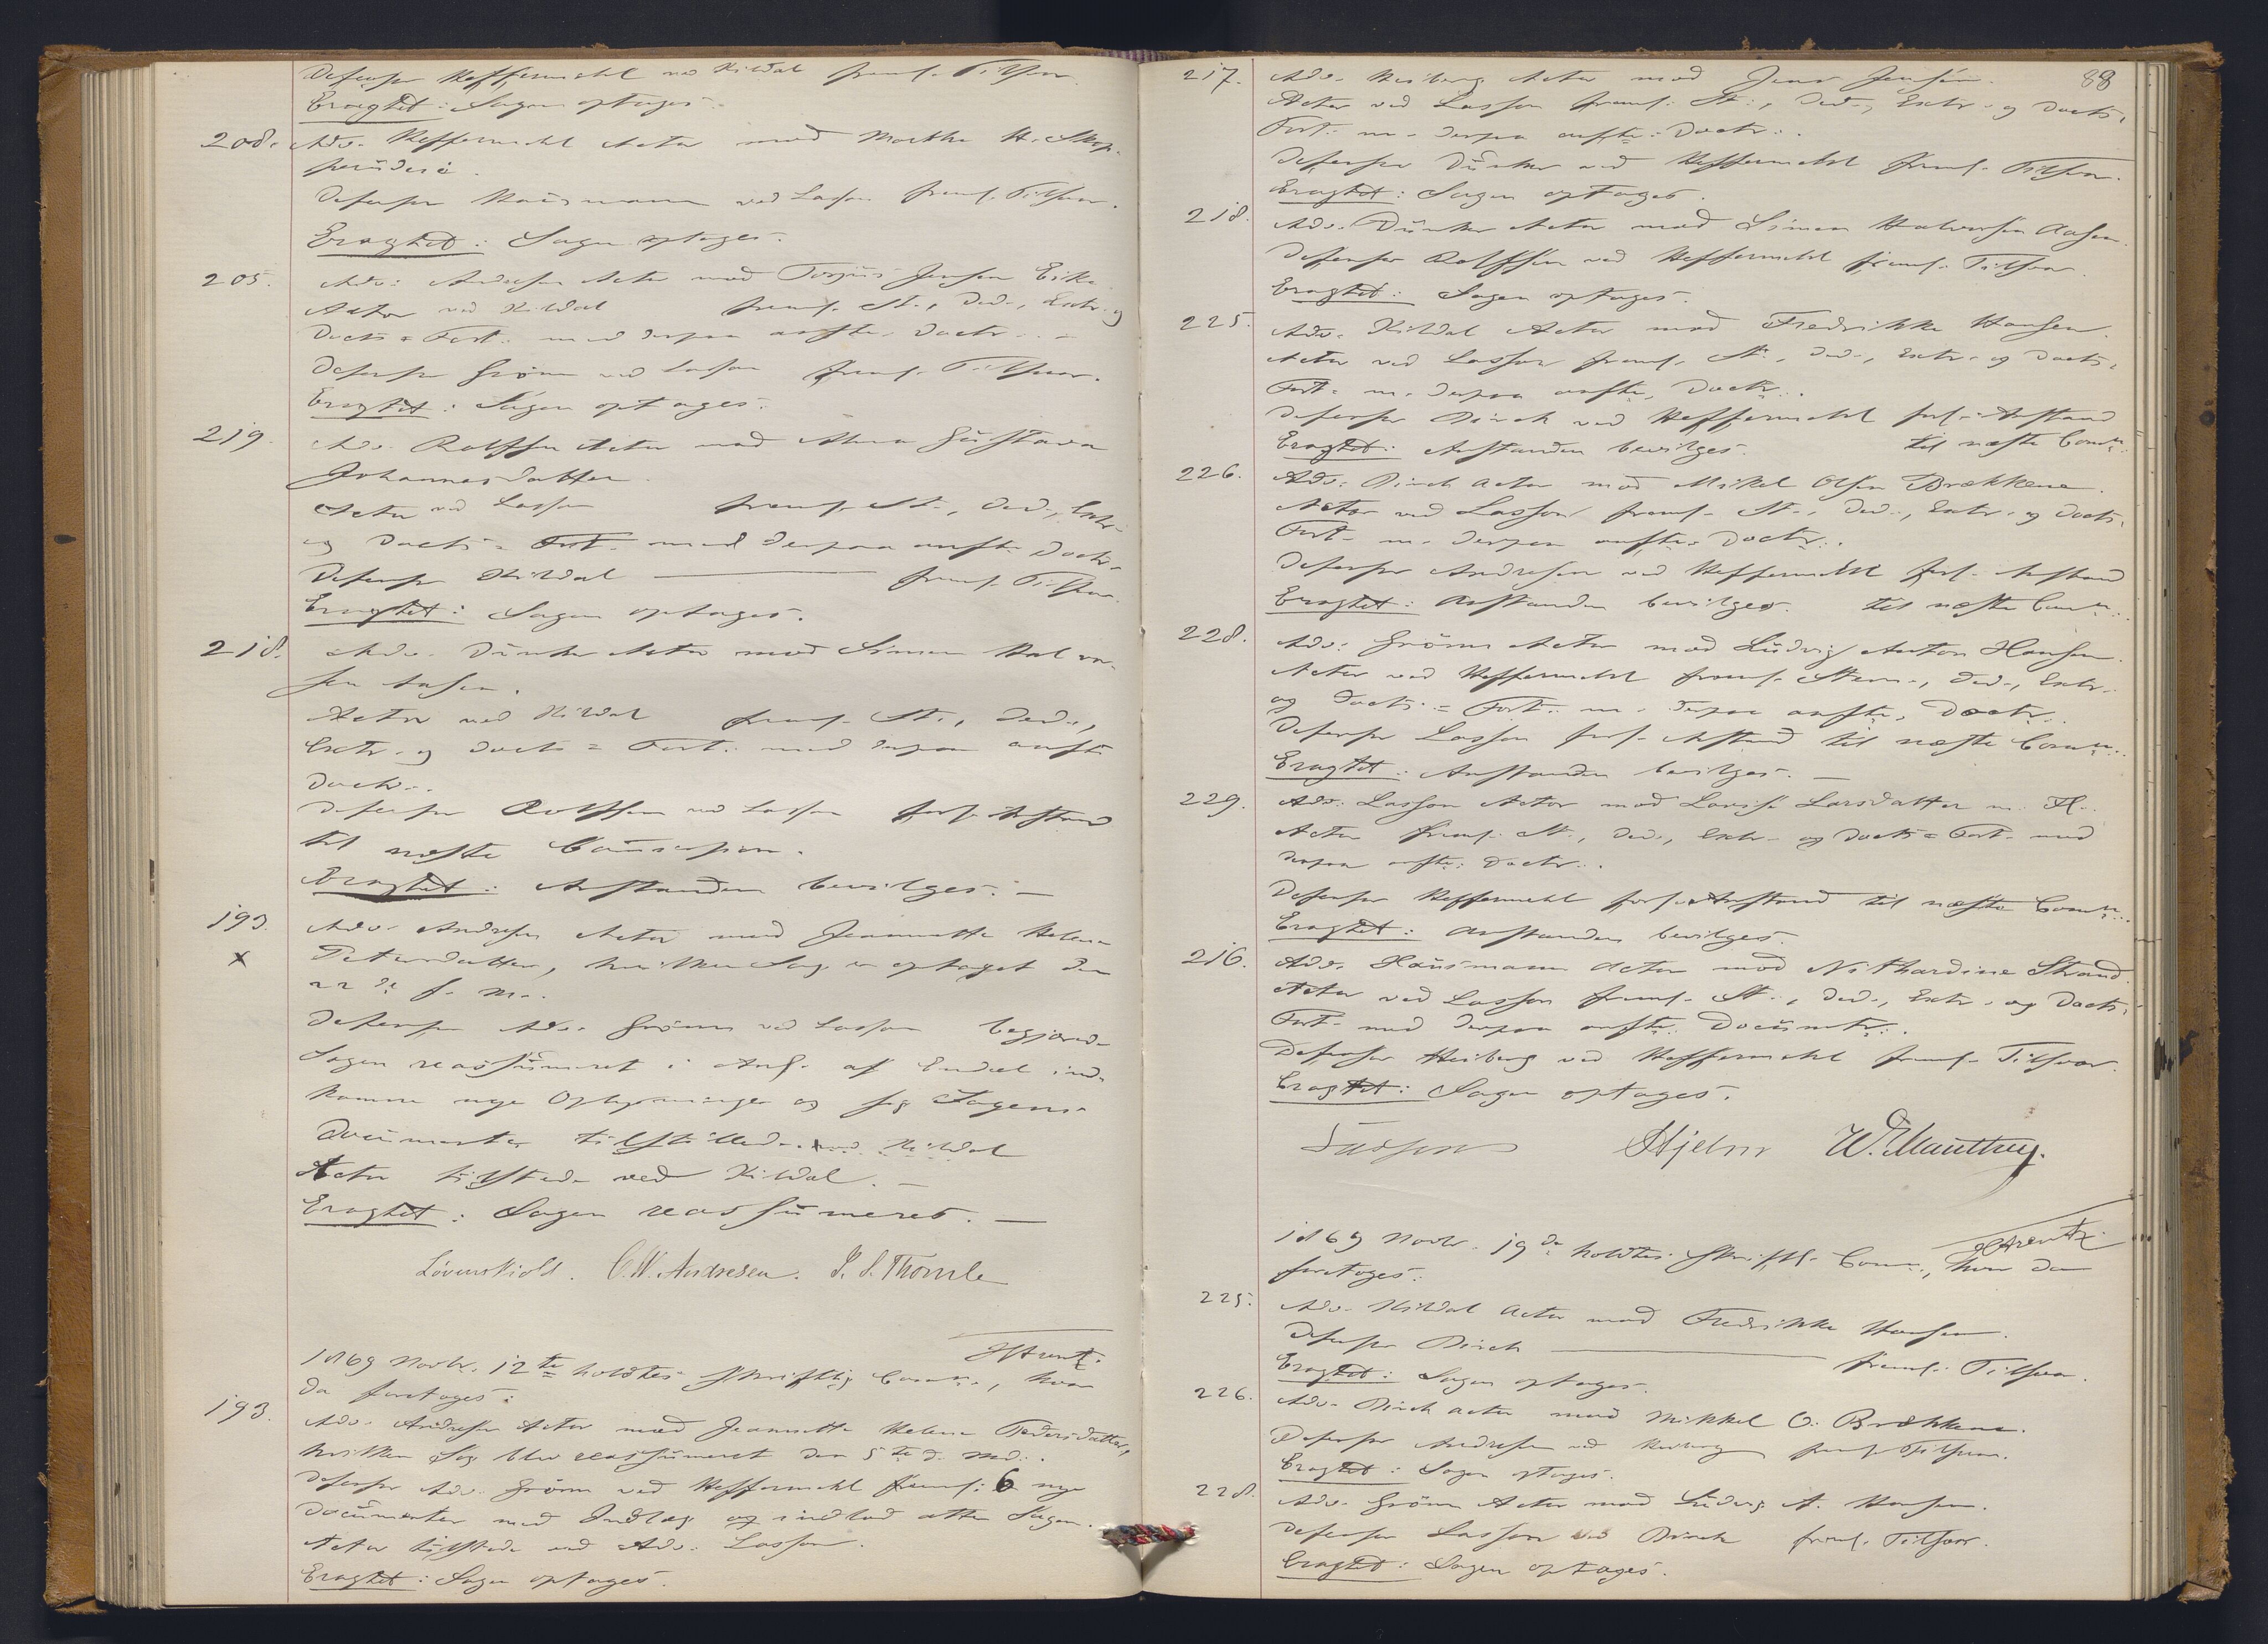 Defensor Heffermehl ved Kildal freml. Tilsvar.
Eragtet: Sagen optages.
208. Adv. Heffermehl Actor mod Marthe H. Skop-
Defensor Hausmann ved Lasson freml. Tilsvar.
Eragtet: Sagen optages.
205. Adv. Andresen Actor mod Torjus Jensen Eike
Actor ved Kildal freml. St., Ded., Extr. og
Docts = Fort. med derpaa anførte Doctr.
Defensor Grönn ved Lasson freml. Tilsvar.
Eragtet: Sagen optages.
219. Adv. Rolfsen Actor mod Anna Gustava
Johannesdatter.
Actor ved Lasson freml. St., Ded., Extr.
og Docts = Fort. med derpaa anførte Doctr.
Defensor Kildal freml. Tilsvar.
Eragtet: Sagen optages.
218. Adv. Dunker Actor mod Simen Halvor-
sen Aasen.
Actor ved Kildal freml. St., Ded.,
Extr. og Docts = Fort. med derpaa anførte
Doctr.
Defensor Rolfsen ved Lasson forl. Anstand
til næste Commission.
Eragtet: Anstanden bevilges. —
193. Adv. Andresen Actor mod Jeannette Helene
x Petersdatter, hvilken Sag er optaget den
22de f. M.
Defensor Adv. Grönn ved Lasson begjærede
Sagen reassumeret i Anl. af Endel ind-
komne nye Oplysninger og sig Sagens
Documenter tilstillede. ved Kildal
Actor tilstede ved Kildal. —
Eragtet: Sagen reassumeres. —
Lövenskiold. C. N. Andresen. I. S. Thomle
HArentz.
1869 Novbr. 12te holdtes skriftlig Comn., hvor
da foretoges:
193. Adv. Andresen Actor mod Jeannette Helene Pedersdatter,
hvilken Sag blev reassumeret den 5te d. Md.
Defensor Adv. Grönn ved Heffermehl freml. 6 nye
Documenter med Indlæg og indlod atter Sagen.
Actor tilstede ved Adv. Lasson.
Eragtet: Sagen optages.
88
217. Adv. Heiberg Actor mod Jens Jensen.
Actor ved Lasson freml. St., Ded., Extr. og Docts.
Fort. m. derpaa anførte Doctr.
Defensor Dunker ved Heffermehl freml. Tilsvar.
Eragtet: Sagen optages.
218. Adv. Dunker Actor mod Simen Halvorsen Aasen.
Defensor Rolfsen ved Heffermehl freml. Tilsvar.
Eragtet: Sagen optages.
225. Adv. Kildal Actor mod Fredrikke Hansen.
Actor ved Lasson freml. St., Ded., Extr. og Docts.
Fort. m. derpaa anførte Doctr.
Defensor Birch ved Heffermehl forl. Anstand
til næste Comn.
Eragtet: Anstanden bevilges.
226. Adv. Birch Actor mod Mikel Olsen Brækkene.
Actor ved Lasson freml. St., Ded., Extr. og Docts.
Fort. m. derpaa anførte Doctr.
Defensor Andresen ved Heffermehl forl. Anstand
Eragtet: Anstanden bevilges. til næste Comn.
228. Adv. Grönn Actor mod Ludvig Anton Hansen.
Actor ved Heffermehl freml. Stevn., Ded., Extr.
og Docts = Fort. m. derpaa anførte Doctr.
Defensor Lasson forl. Anstand til næste Comn.
Eragtet: Anstanden bevilges. —
229. Adv. Lasson Actor mod Lovise Larsdatter m. Fl.
Actor freml. St., Ded., Extr. og Docts = Fort. med
derpaa anførte Doctr.
Defensor Heffermehl forl. Anstand til næste Comn.
Eragtet: Anstanden bevilges.
216. Adv. Hausmann Actor mod Nithardine Strand.
Actor ved Lasson freml. St., Ded., Extr. og Docts.
Fort. med derpaa anførte Documtr.
Defensor Heiberg ved Heffermehl freml. Tilsvar.
Eragtet: Sagen optages.
Hjelm W. Manthey.
HArentz.
1869 Novbr. 19de holdtes skriftl. Comn., hvor da
foretoges:
225. Adv. Kildal Actor mod Fredrikke Hansen.
Defensor Birch freml. Tilsvar.
Eragtet: Sagen optages.
226. Adv. Birch Actor mod Mikkel O. Brækkene.
Defensor Andresen ved Heiberg freml. Tilsvar.
Eragtet: Sagen optages.
228. Adv. Grönn Actor mod Ludvig A. Hansen.
Defensor Lasson ved Birch freml. Tilsvar.
Eragtet: Sagen optages.